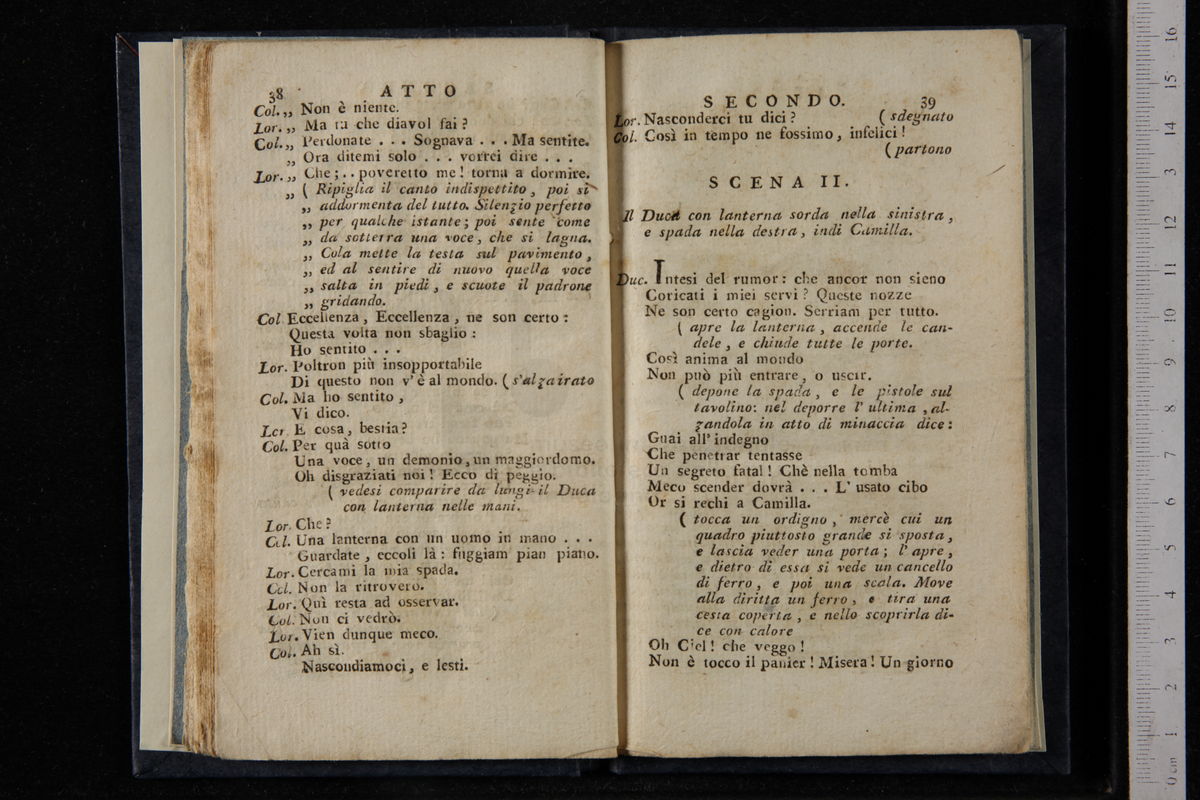 38 ATTO
Col.,, Non è niente.
Lor.,, Ma tu che diavol fai?
Col.,, Perdonate . . . Sognava . . . Ma sentite.
,, Ora ditemi solo . . . vorrei dire . . .
Lor.,, Che; . . poveretto me! torna a dormire.
,, ( Ripiglia il canto indispettito, poi si
,, addormenta del tutto. Silenzio perfetto
,, per qualche istante; poi sente come
,, da sotterra una voce, che si lagna.
,, Cola mette la testa sul pavimento,
,, ed al sentire di nuovo quella voce
,, salta in piedi, e scuote il padrone
,, gridando.
Col. Eccellenza, Eccellenza, ne son certo:
Questa volta non sbaglio:
Ho sentito . . .
Lor. Poltron più insopportabile
Di questo non v'è al mondo. ( s'alza irato
Col. Ma ho sentito,
Vi dico.
Lor. E cosa, bestia?
Col. Per quà sotto
Una voce, un demonio, un maggiordomo.
Oh disgraziati noi! Ecco di peggio.
( vedesi comparire da lungi il Duca
con lanterna nelle mani.
Lor. Che?
Col. Una lanterna con un uomo in mano . . .
Guardate, eccoli là: fuggiam pian piano.
Lor. Cercami la mia spada.
Col. Non la ritrovero.
Lor. Quì resta ad osservar.
Col. Non ci vedrò.
Lor. Vien dunque meco.
Col. Ah sì.
Nascondiamoci, e lesti.
SECONDO. 39
Lor. Nasconderci tu dici? ( sdegnato
Col. Così in tempo ne fossimo, infelici!
( partono
SCENA II.
Il Duca con lanterna sorda nella sinistra,
e spada nella destra, indi Camilla.
Duc. Intesi del rumor: che ancor non sieno
Coricati i miei servi? Queste nozze
Ne son certo cagion. Serriam per tutto.
( apre la lanterna, accende le can-
dele, e chiude tutte le porte.
Così anima al mondo
Non può più entrare, o uscir.
( depone la spada, e le pistole sul
tavolino: nel deporre l' ultima, al-
zandola in atto di minaccia dice:
Guai all' indegno
Che penetrar tentasse
Un segreto fatal! Chè nella tomba
Meco scender dovrà . . . L' usato cibo
Or si rechi a Camilla.
( tocca un ordigno, mercè cui un
quadro piuttosto grande si sposta,
e lascia veder una porta; l' apre,
e dietro di essa si vede un cancello
di ferro, e poi una scala. Move
alla diritta un ferro, e tira una
cesta coperta, e nello scoprirla di-
ce con calore
Oh Ciel! che veggo!
Non è tocco il panier! Misera! Un giorno
0 cm 1 2 3 4 5 6 7 8 9 10 11 12 13 14 15 16